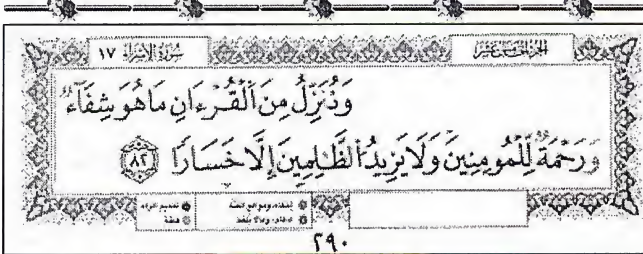 سُورَةُ الإِسْرَاءِ ١٧
وَنُنَزِّلُ مِنَ ٱلْقُرْءَانِ مَا هُوَ شِفَآءٌ
وَرَحْمَةٌ لِّلْمُومِنِينَ وَلَا يَزِيدُ ٱلظَّٰلِمِينَ إِلَّا خَسَارًا ٨٢
٢٩٠